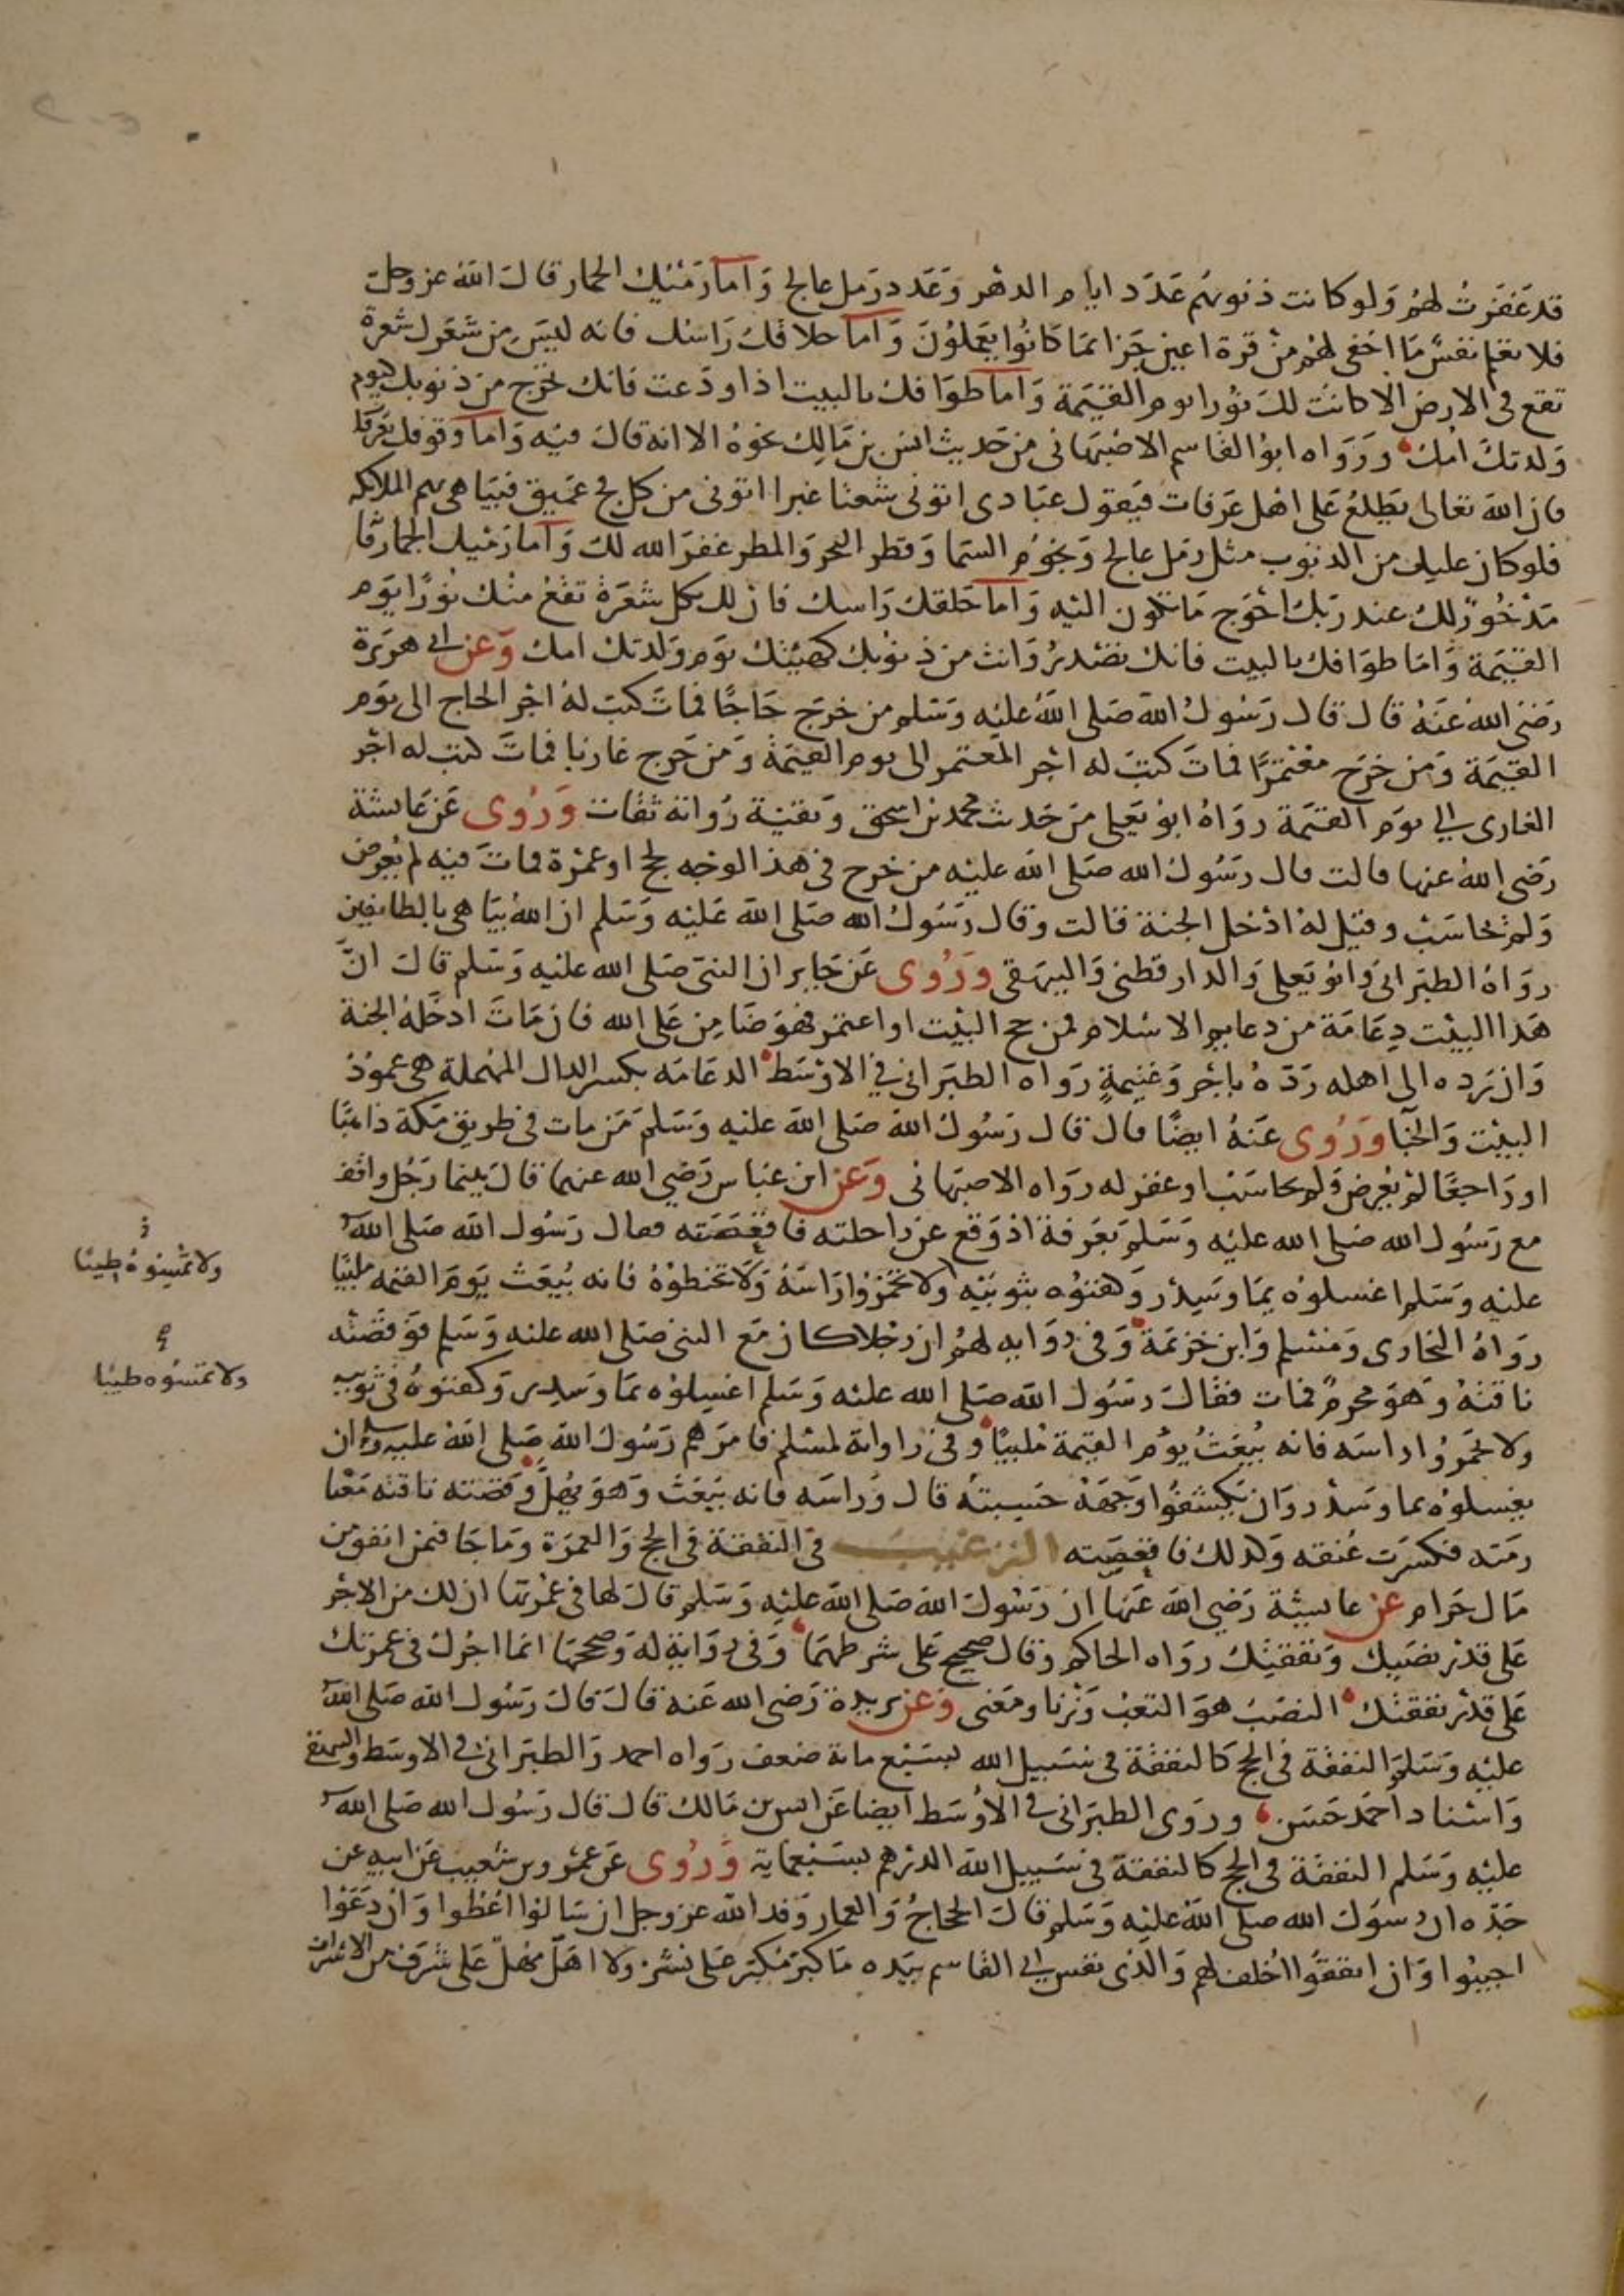 قد غفرت لهم ولو كانت ذنوبهم عدد ايام الدهر وعدد رمل عالج واما رميك الجمار قال الله عز وجل
فلا تعلم نفس ما اخفى لهم من قرة اعين جزا بما كانوا يعملون واما حلاقك راسك فانه ليس من شعرك شعرة
تقع فى الارض الا كانت لك نورا يوم القيمة واما طوافك بالبيت اذا ودعت فانك تخرج من ذنوبك كيوم
ولدتك امك ورواه ابو القاسم الاصبهانى من حديث انس بن مالك نحوه الا انه قال فيه واما وقوفك بعرفات
فان الله تعالى يطلع على اهل عرفات فيقول عبادى اتونى شعثا غبرا اتونى من كل فج عميق فيباهى بهم الملائكة
فلو كان عليك من الذنوب مثل رمل عالج ونجوم السما وقطر البحر والمطر غفر الله لك واما رميك الجمار فانه
مدخور لك عند ربك احوج ما تكون اليه واما حلقك راسك فان لك بكل شعرة تقع منك نورا يوم
القيمة واما طوافك بالبيت فانك تصدر وانت من ذنوبك كهيئتك يوم ولدتك امك وعن ابي هريرة
رضى الله عنه قال قال رسول الله صلى الله عليه وسلم من خرج حاجا فمات كتب له اجر الحاج الى يوم
القيمة ومن خرج معتمرا فمات كتب له اجر المعتمر الى يوم القيمة ومن خرج غازيا فمات كتب له اجر
الغازى الي يوم القيمة رواه ابو يعلى من حديث محمد بن اسحق وبقية رواته ثقات وروى عن عائشة
رضى الله عنها قالت قال رسول الله صلى الله عليه من خرج فى هذا الوجه لحج او عمرة فمات فيه لم يعرض
ولم يحاسب وقيل له ادخل الجنة قالت وقال رسول الله صلى الله عليه وسلم ان الله يباهى بالطائفين
رواه الطبرانى وابو يعلى والدارقطنى والبيهقى وروى عن جابر ان النبى صلى الله عليه وسلم قال ان
هذا البيت دعامة من دعايم الاسلام فمن حج البيت او اعتمر فهو ضامن على الله فان مات ادخله الجنة
وان رده الى اهله رده باجر وغنيمة رواه الطبرانى فى الاوسط الدعامه بكسر الدال المهملة هى عمود
البيت والخبا وروى عنه ايضا قال قال رسول الله صلى الله عليه وسلم من مات فى طريق مكة ذاهبا
او راجعا لم يعرض ولم يحاسب او غفر له رواه الاصبهانى وعن ابن عباس رضي الله عنهما قال بينما رجل واقف
مع رسول الله صلى الله عليه وسلم بعرفة اذ وقع عن راحلته فاقعصته فقال رسول الله صلى الله
عليه وسلم اغسلوه بما وسدر وكفنوه بثوبيه ولا تخمروا راسه ولا تحنطوه فانه يبعث يوم القيمه ملبيا
رواه البخارى ومسلم وابن خزيمة وفى رواية لهم ان رجلا كان مع النبى صلى الله عليه وسلم فوقصته
ناقته وهو محرم فمات فقال رسول الله صلى الله عليه وسلم اغسلوه بما وسدر وكفنوه فى ثوبيه
ولا تخمروا راسه فانه يبعث يوم القيمة ملبيا وفى راواية لمسلم فامرهم رسول الله صلى الله عليه وسلم ان
يغسلوه بما وسدر وان يكشفوا وجهه حسبته قال وراسه فانه يبعث وهو يهل وقصته ناقته معنا
رمته فكسرت عنقه وكذلك فاقعصته الترغيب فى النفقة فى الحج والعمرة وما جا فيمن انفق من
مال حرام عن عايشة رضي الله عنها ان رسول الله صلى الله عليه وسلم قال لها فى عمرتها ان لك من الاجر
على قدر نصبك ونفقتك رواه الحاكم وقال صحيح على شرطهما وفى رواية له وصححها انما اجرك فى عمرتك
على قدر نفقتك النصب هو التعب وزنا ومعنى وعن بريدة رضى الله عنه قال قال رسول الله صلى الله
عليه وسلم النفقة فى الحج كالنفقة فى سبيل الله بسبع مائة ضعف رواه احمد والطبرانى فى الاوسط والبيهقى
واسناد احمد حسن وروى الطبرانى فى الاوسط ايضا عن انس بن مالك قال قال رسول الله صلى الله
عليه وسلم النفقة فى الحج كالنفقة فى سبيل الله الدرهم بسبعماية وروى عن عمرو بن شعيب عن ابيه عن
جده ان رسول الله صلى الله عليه وسلم قال الحجاج والعمار وفد الله عز وجل ان سالوا اعطوا وان دعوا
اجيبوا وان انفقوا اخلف لهم والذى نفس ابى القاسم بيده ما كبر مكبر على نشز ولا اهل مهل على شرف من الاشراف
ولا تمسوه طيبا
ولا تمسوه طيبا